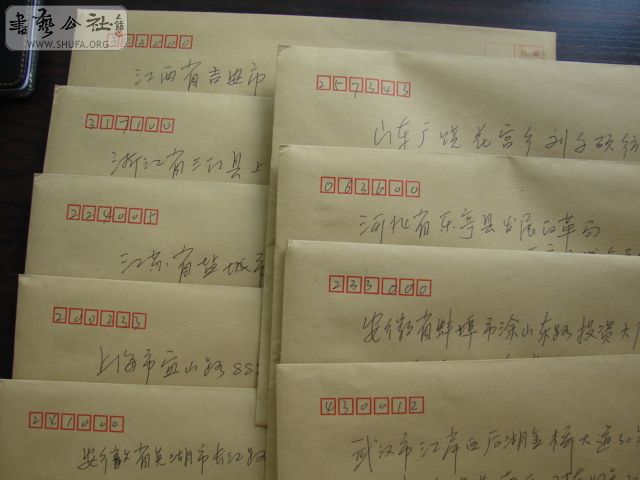 書藝公社
WWW.SHUFA.ORG
343000
江西省吉安市
317100
浙江省三门县上
224005
江苏省盐城市
200333
上海市
山路88
241000
安徽省芜湖市长江路
257343
山东广饶花宫乡刘
063600
河北省乐亭县发展改革局
233000
安徽省蚌埠市涂山东路投资大厦
430012
武汉市江岸区后湖金桥大道30号